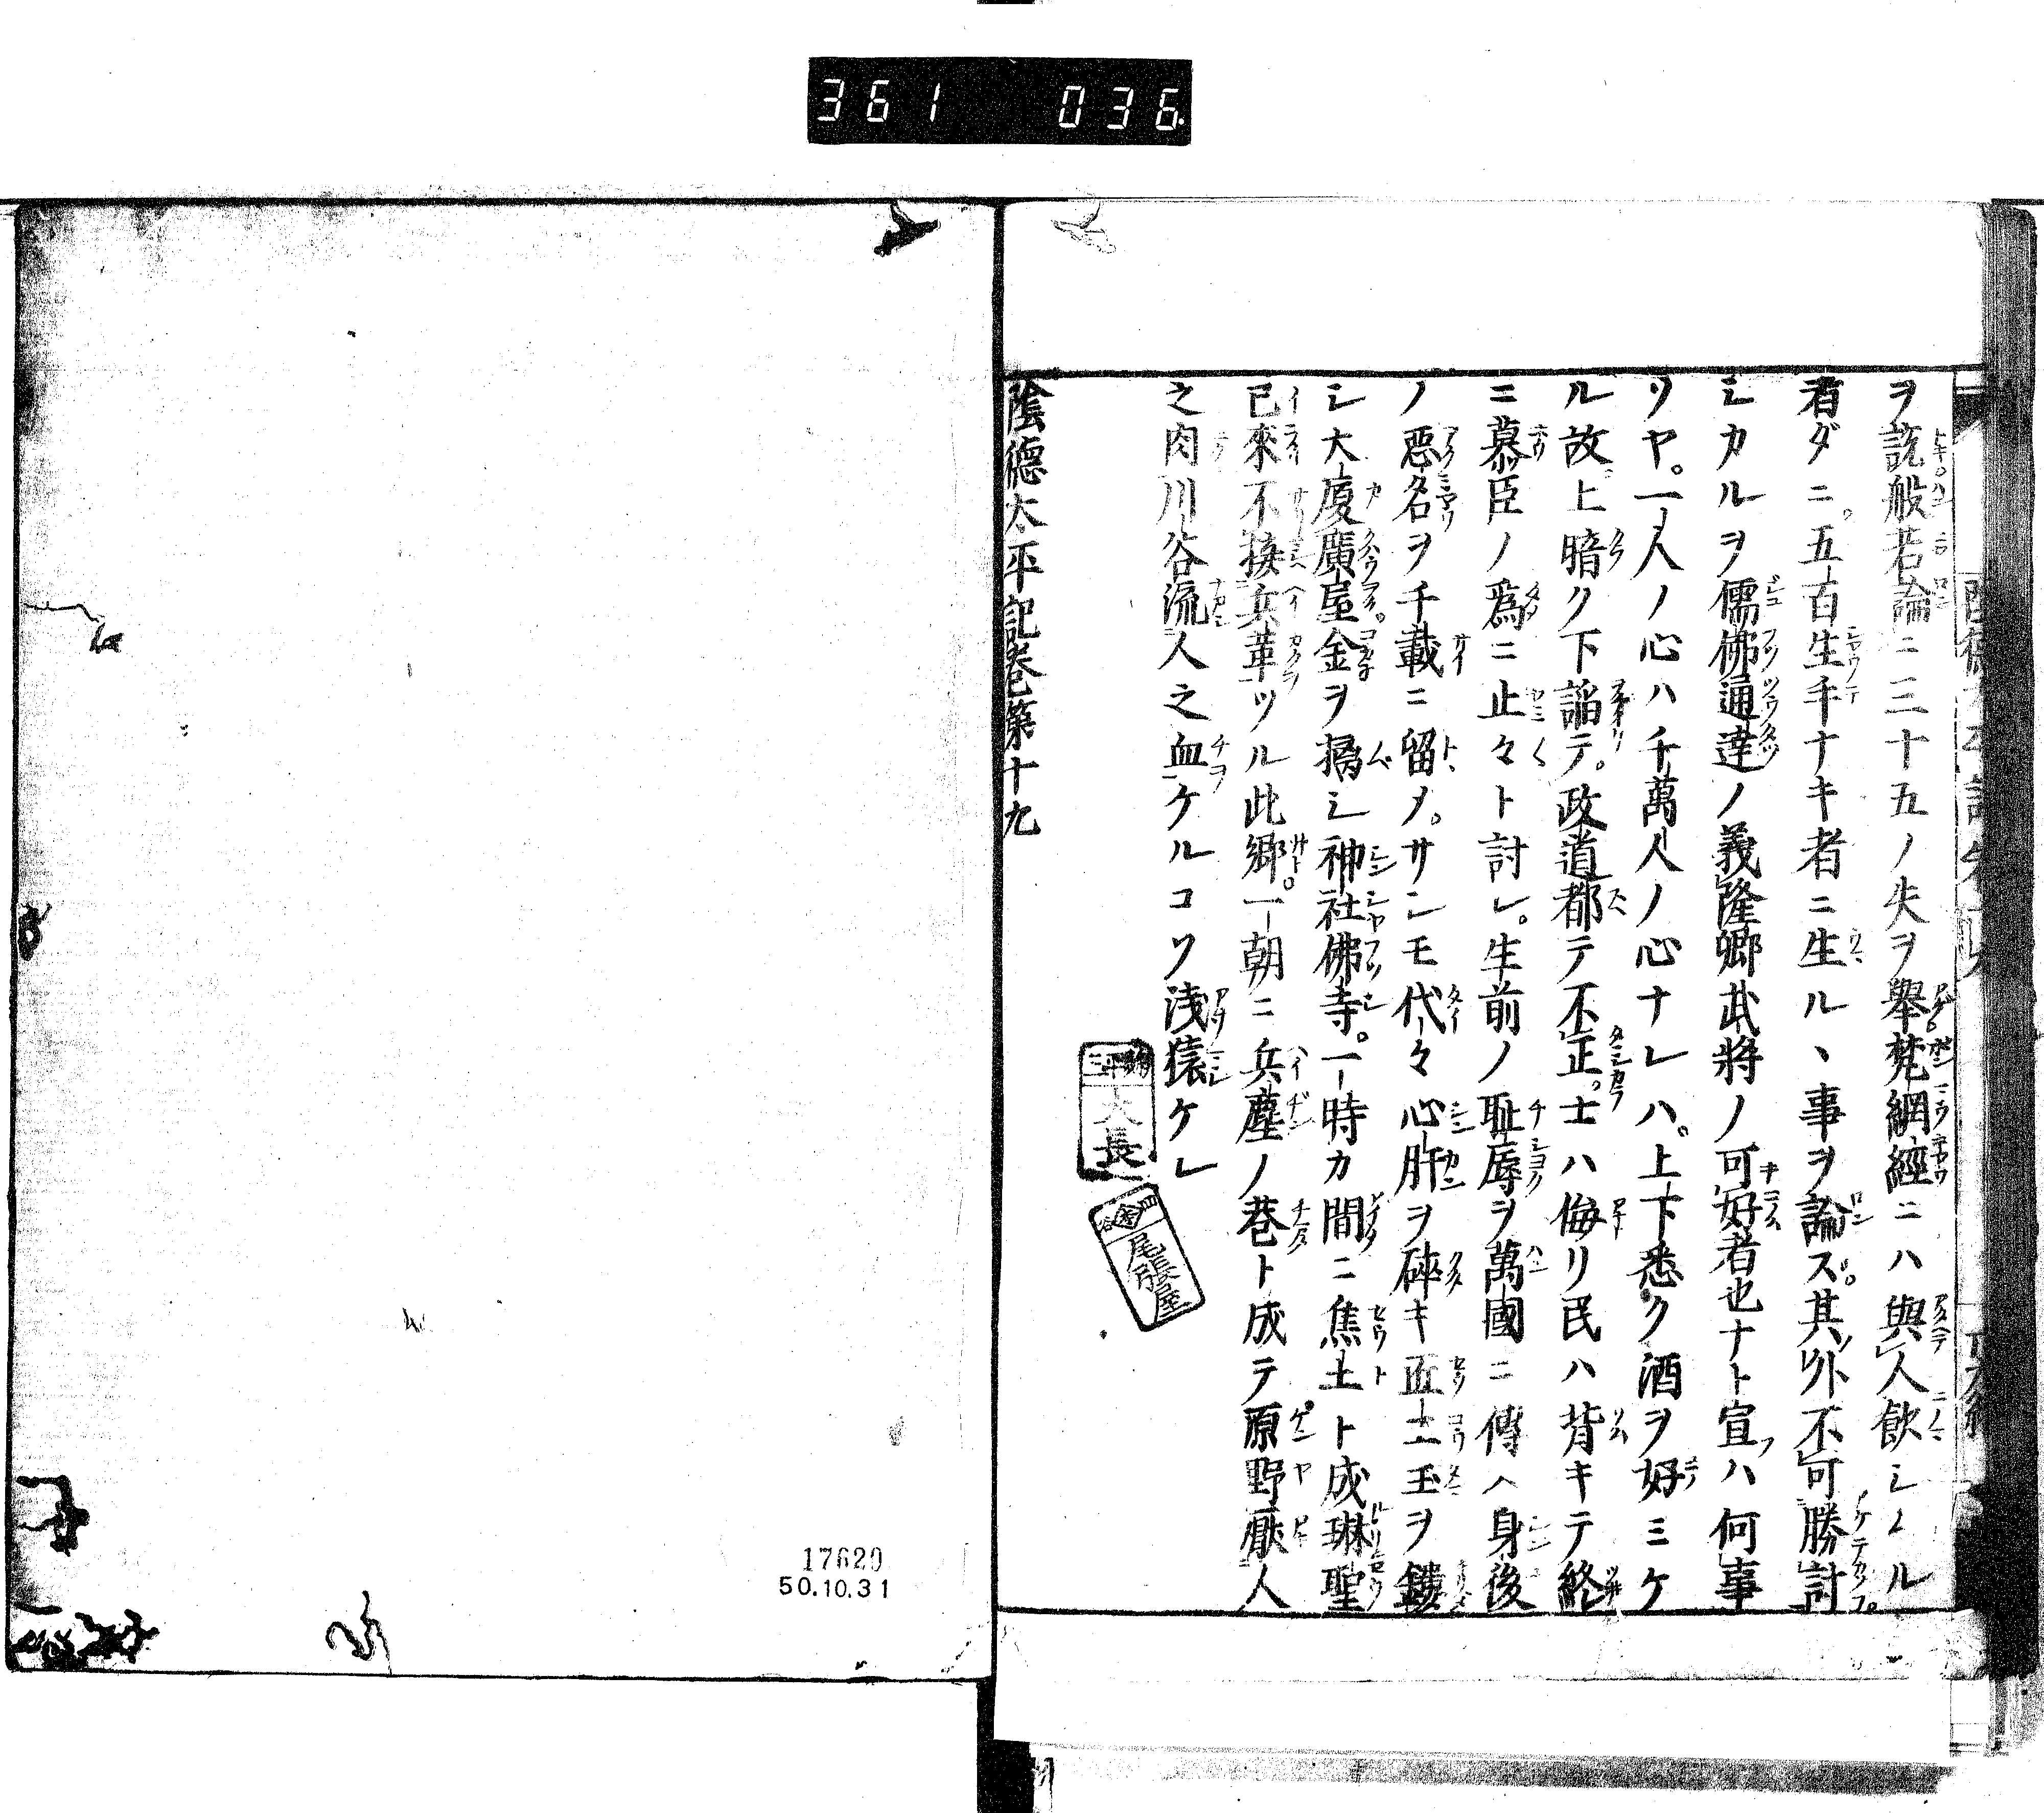 361 036
ヲ説般若論ニ三十五ノ失ヲ擧梵網經ニハ與人飲シムル
者ダニ五百生手ナキ者ニ生ルヽ事ヲ論ス其外不可勝計
シカルヲ儒佛通達ノ義隆卿武將ノ可好者也ナト宣ハ何事
ソヤ一人ノ心ハ千萬人ノ心ナレハ上下悉ク酒ヲ好ミケ
ル故上暗ク下諂テ政道都テ不正士ハ侮リ民ハ背キテ終
ニ慕臣ノ爲ニ止々ト討レ生前ノ耻辱ヲ萬國ニ傳ヘ身後
ノ惡名ヲ千載ニ留メサシモ代々心肝ヲ碎キ玉ヲ鏤
シ大厦廣屋金ヲ搨シ神社佛寺一時カ間ニ焦土ト成琳聖
已來不換兵革ツル此郷一朝ニ兵塵ノ巷ト成テ原野厭人
之肉川谷流人之血ケルコソ浅猿ケレ
陰德太平記巻第十九
大長
尾張屋
17629
50.10.31